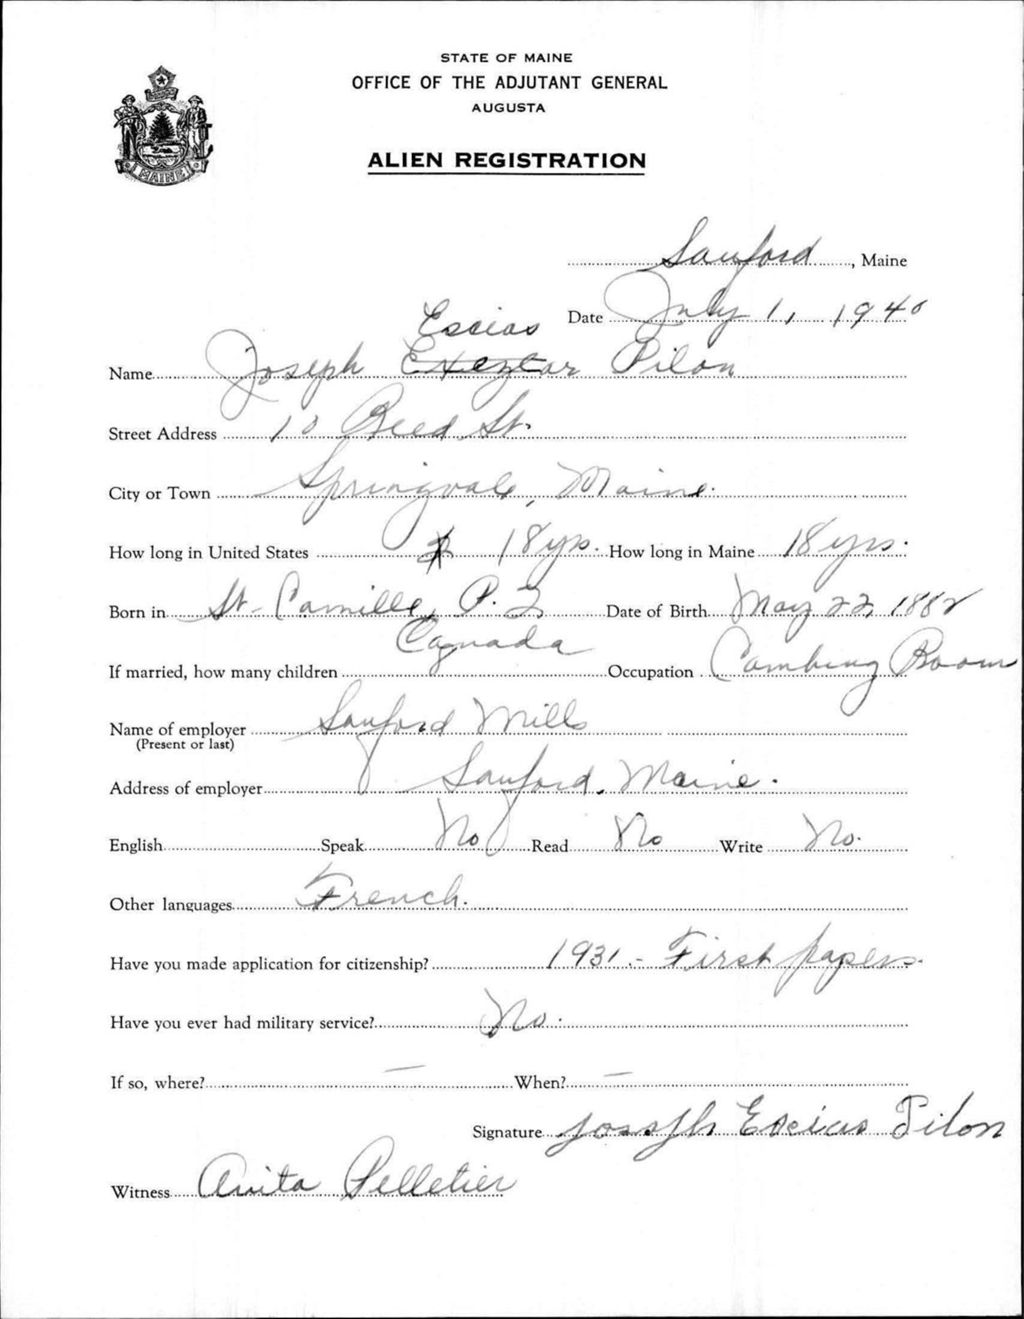 STATE OF MAINE
OFFICE OF THE ADJUTANT GENERAL
AUGUSTA
ALIEN REGISTRATION
MAINE
Sanford, Maine
Date July 1, 1940
Escias
Name Joseph Pilon
Street Address 10 Reed St.
City or Town Springvale, Maine.
How long in United States 18 yrs. How long in Maine 18 yrs.
Born in St. Camille, P. Q. Date of Birth May 22, 1882
Canada
If married, how many children Occupation Combing Room
Name of employer Sanford Mills
(Present or last)
Address of employer Sanford, Maine.
English Speak No Read No Write No.
Other languages French.
Have you made application for citizenship? 1931. - First papers.
Have you ever had military service? No.
If so, where? — When? —
Signature Joseph Escias Pilon
Witness Anita Pelletier